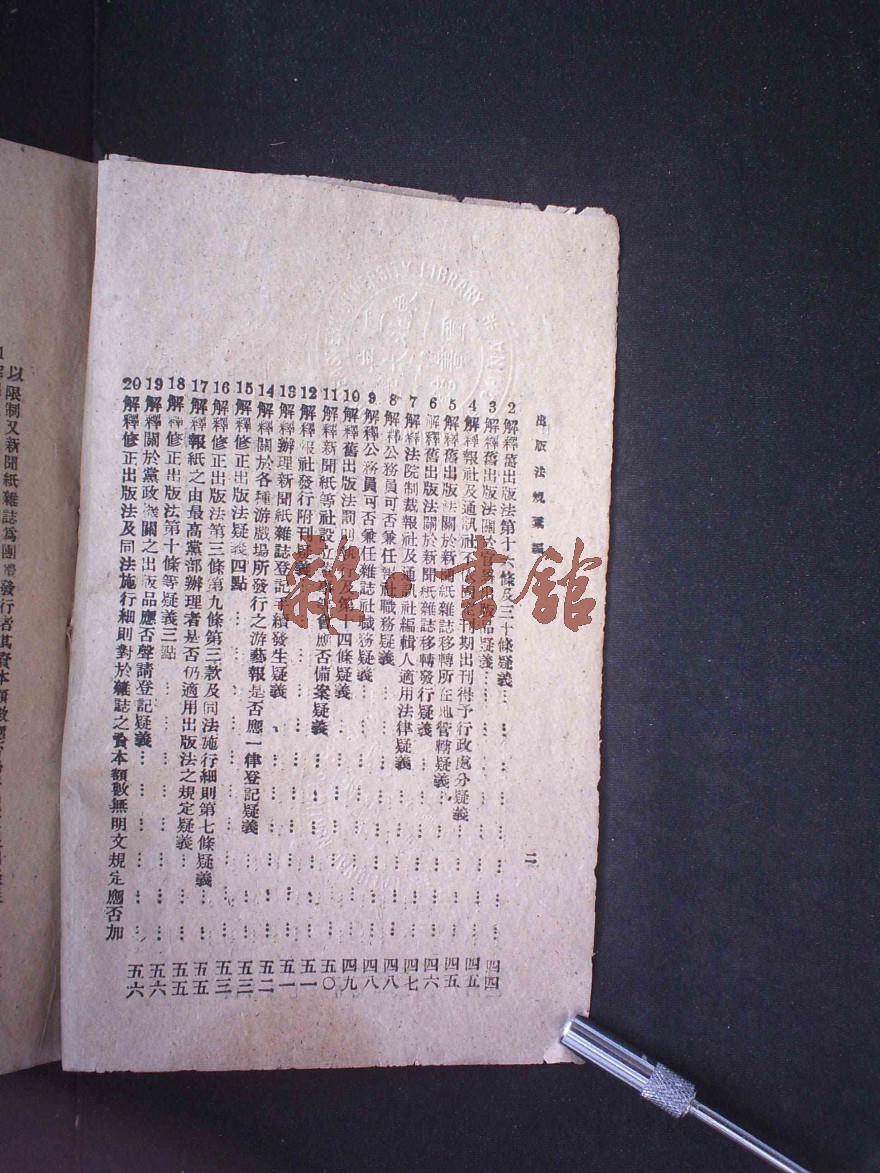 出版法規彙編
二
2 解釋舊出版法第十六條及三十條疑義………四四
3 解釋舊出版法關於官 出版品疑義………四五
4 解釋報社及通訊社不 刊期出刊得予行政處分疑義………四五
5 解釋舊出版法關於新聞紙雜誌移轉所在地管轄疑義………四六
6 解釋舊出版法關於新聞紙雜誌移轉發行疑義………四七
7 解釋法院制裁報社及通訊社編輯人適用法律疑義………四八
8 解釋公務員可否兼任報社職務疑義………四八
9 解釋公務員可否兼任雜誌社職務疑義………四九
10 解釋舊出版法罰則執行及第 十四條疑義
11 解釋新聞紙等社設立 會應否備案疑義………五〇
12 解釋報社發行附刊疑義………五一
13 解釋辦理新聞紙雜誌登記手續發生疑義………五一
14 解釋關於各種游戲場所發行之游藝報是否應一律登記疑義………五二
15 解釋修正出版法疑義四點………五三
16 解釋修正出版法第三條第九條第三款及同法施行細則第七條疑義………五三
17 解釋報紙之由最高黨部辦理者是否仍適用出版法之規定疑義………五五
18 解釋修正出版法第十條等疑義三點………五五
19 解釋關於黨政機關之出版品應否聲請登記疑義………五六
20 解釋修正出版法及同法施行細則對於雜誌之資本額數無明文規定應否加
以限制又新聞紙雜誌為團體發行者其資本額數應否
雜·書館
UNIVERSITY LIBRARY